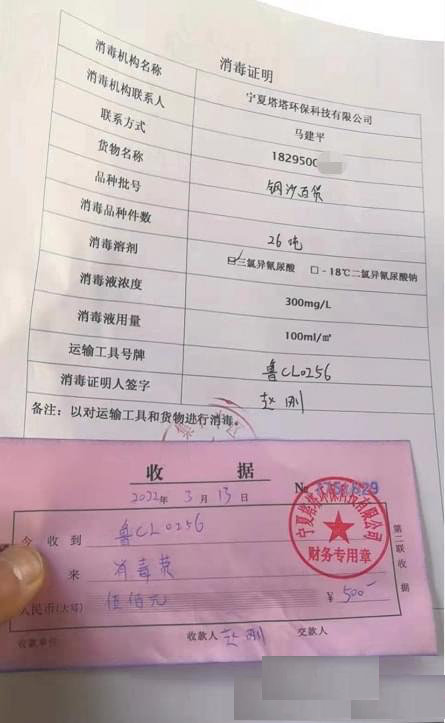 消毒证明
消毒机构名称 宁夏塔塔环保科技有限公司
消毒机构联系人 马建平
联系方式 1829500
货物名称 钢沙百货
品种批号
消毒品种件数 26吨
消毒溶剂 ☑三氯异氰尿酸 □-18℃二氯异氰尿酸钠
消毒液浓度 300mg/L
消毒液用量 100ml/㎡
运输工具号牌 鲁CL0256
消毒证明人签字 赵刚
备注：以对运输工具和货物进行消毒。
收 据
2022年 3月 13日
№
今收到 鲁CL0256
来 消毒费
人民币(大写) 伍佰元 ¥500-
收款单位 收款人 赵刚 交款人
第二联收据
宁夏塔塔环保科技有限公司
财务专用章